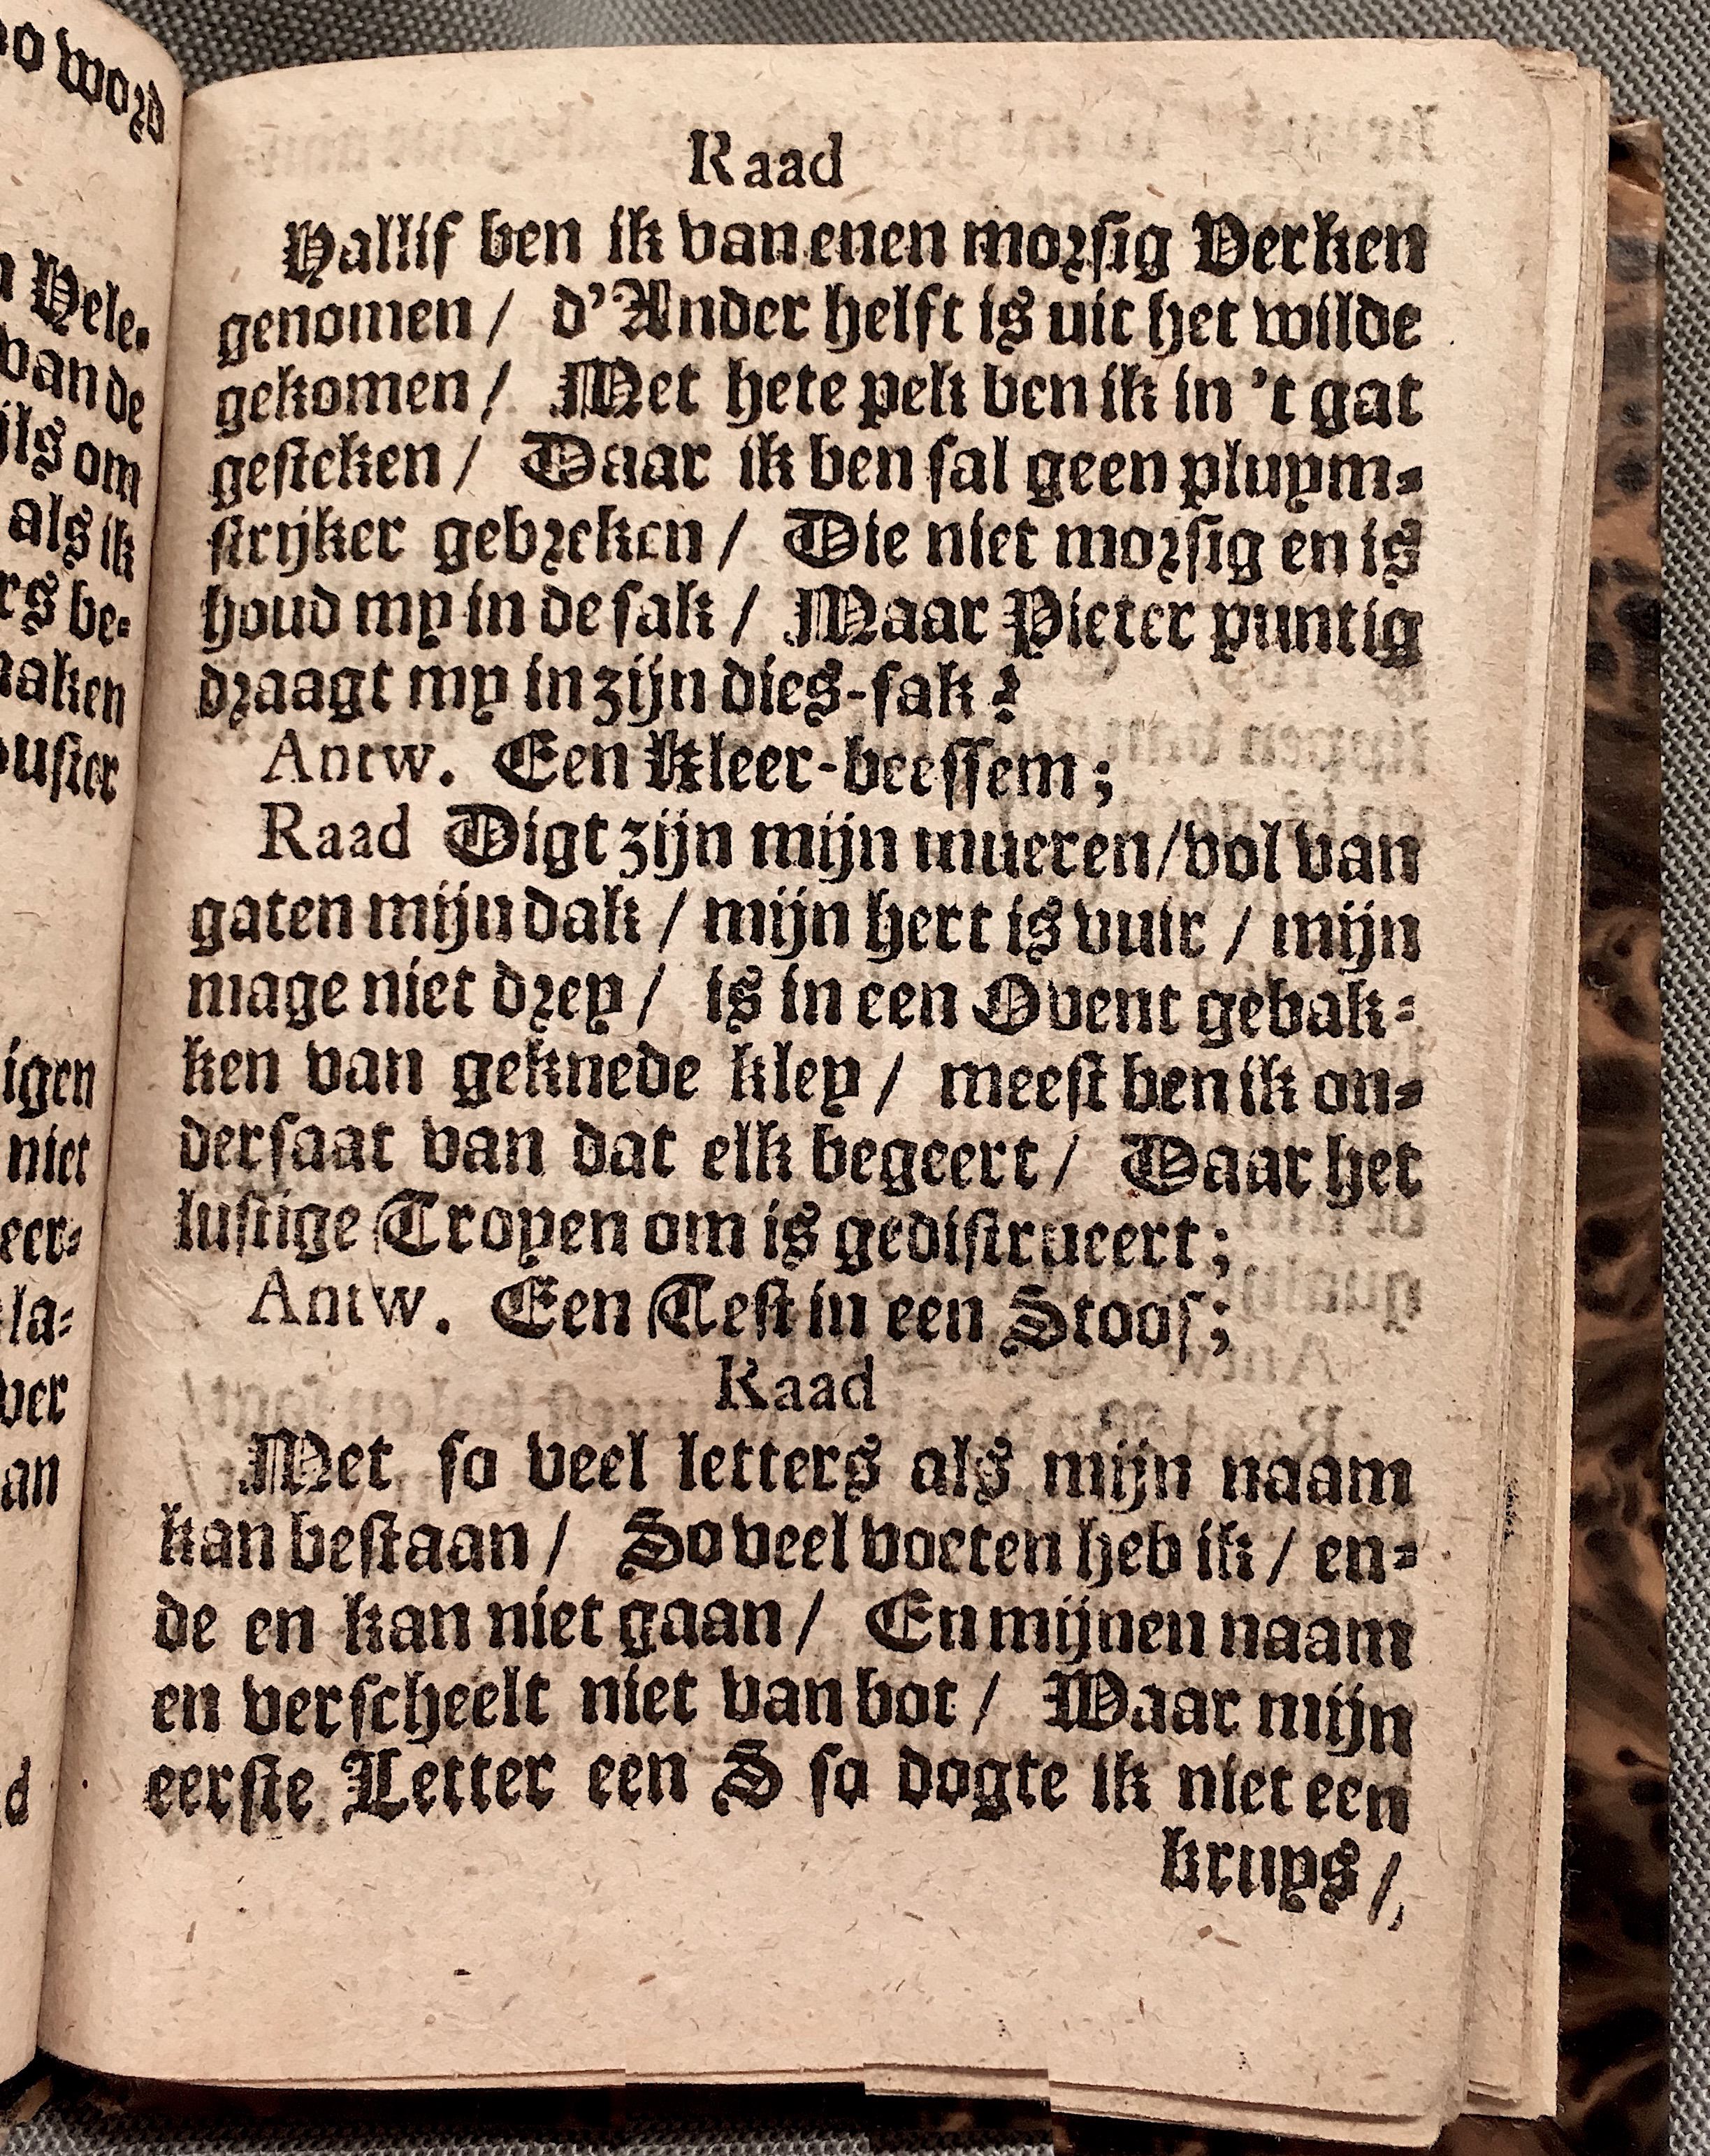 Raad
Hallif ben ik van enen morsig Verken
genomen / d'Ander helft is uit het wilde
gekomen / Met hete pek ben ik in 't gat
gesteken / Daar ik ben sal geen pluym-
strijker gebreken / Die niet morsig en is
houd my in de sak / Maar Pieter puntig
draagt my in zijn dies-sak?
Antw. Een Kleer-beessem;
Raad Digt zijn mijn mueren / vol van
gaten mijn dak / mijn hert is vuir / mijn
mage niet drey / is in een Ovent gebak-
ken van geknede kley / meest ben ik on-
dersaat van dat elk begeert / Daar het
lustige Troyen om is gedistrueert;
Antw. Een Test in een Stoof;
Raad
Met so veel letters als mijn naam
kan bestaan / So veel voeten heb ik / en-
de en kan niet gaan / En mijnen naam
en verscheelt niet van bot / Waar mijn
eerste Letter een S so dogte ik niet een
bruys /
wozd
Hele-
van de
om
als ik
be-
igen
niet
ver
an